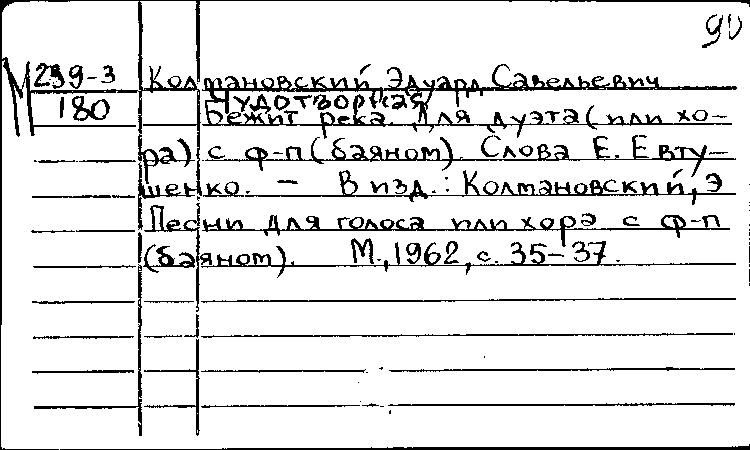 90
М 239-3 Колмановский, Эдуард Савельевич
180 Чудотворная
Бежит река. Для дуэта (или хо-
ра) с ф-п (баяном). Слова Е. Евту-
шенко. – В изд.: Колмановский, Э
Песни для голоса или хора с ф-п
(баяном). М., 1962, с. 35-37.